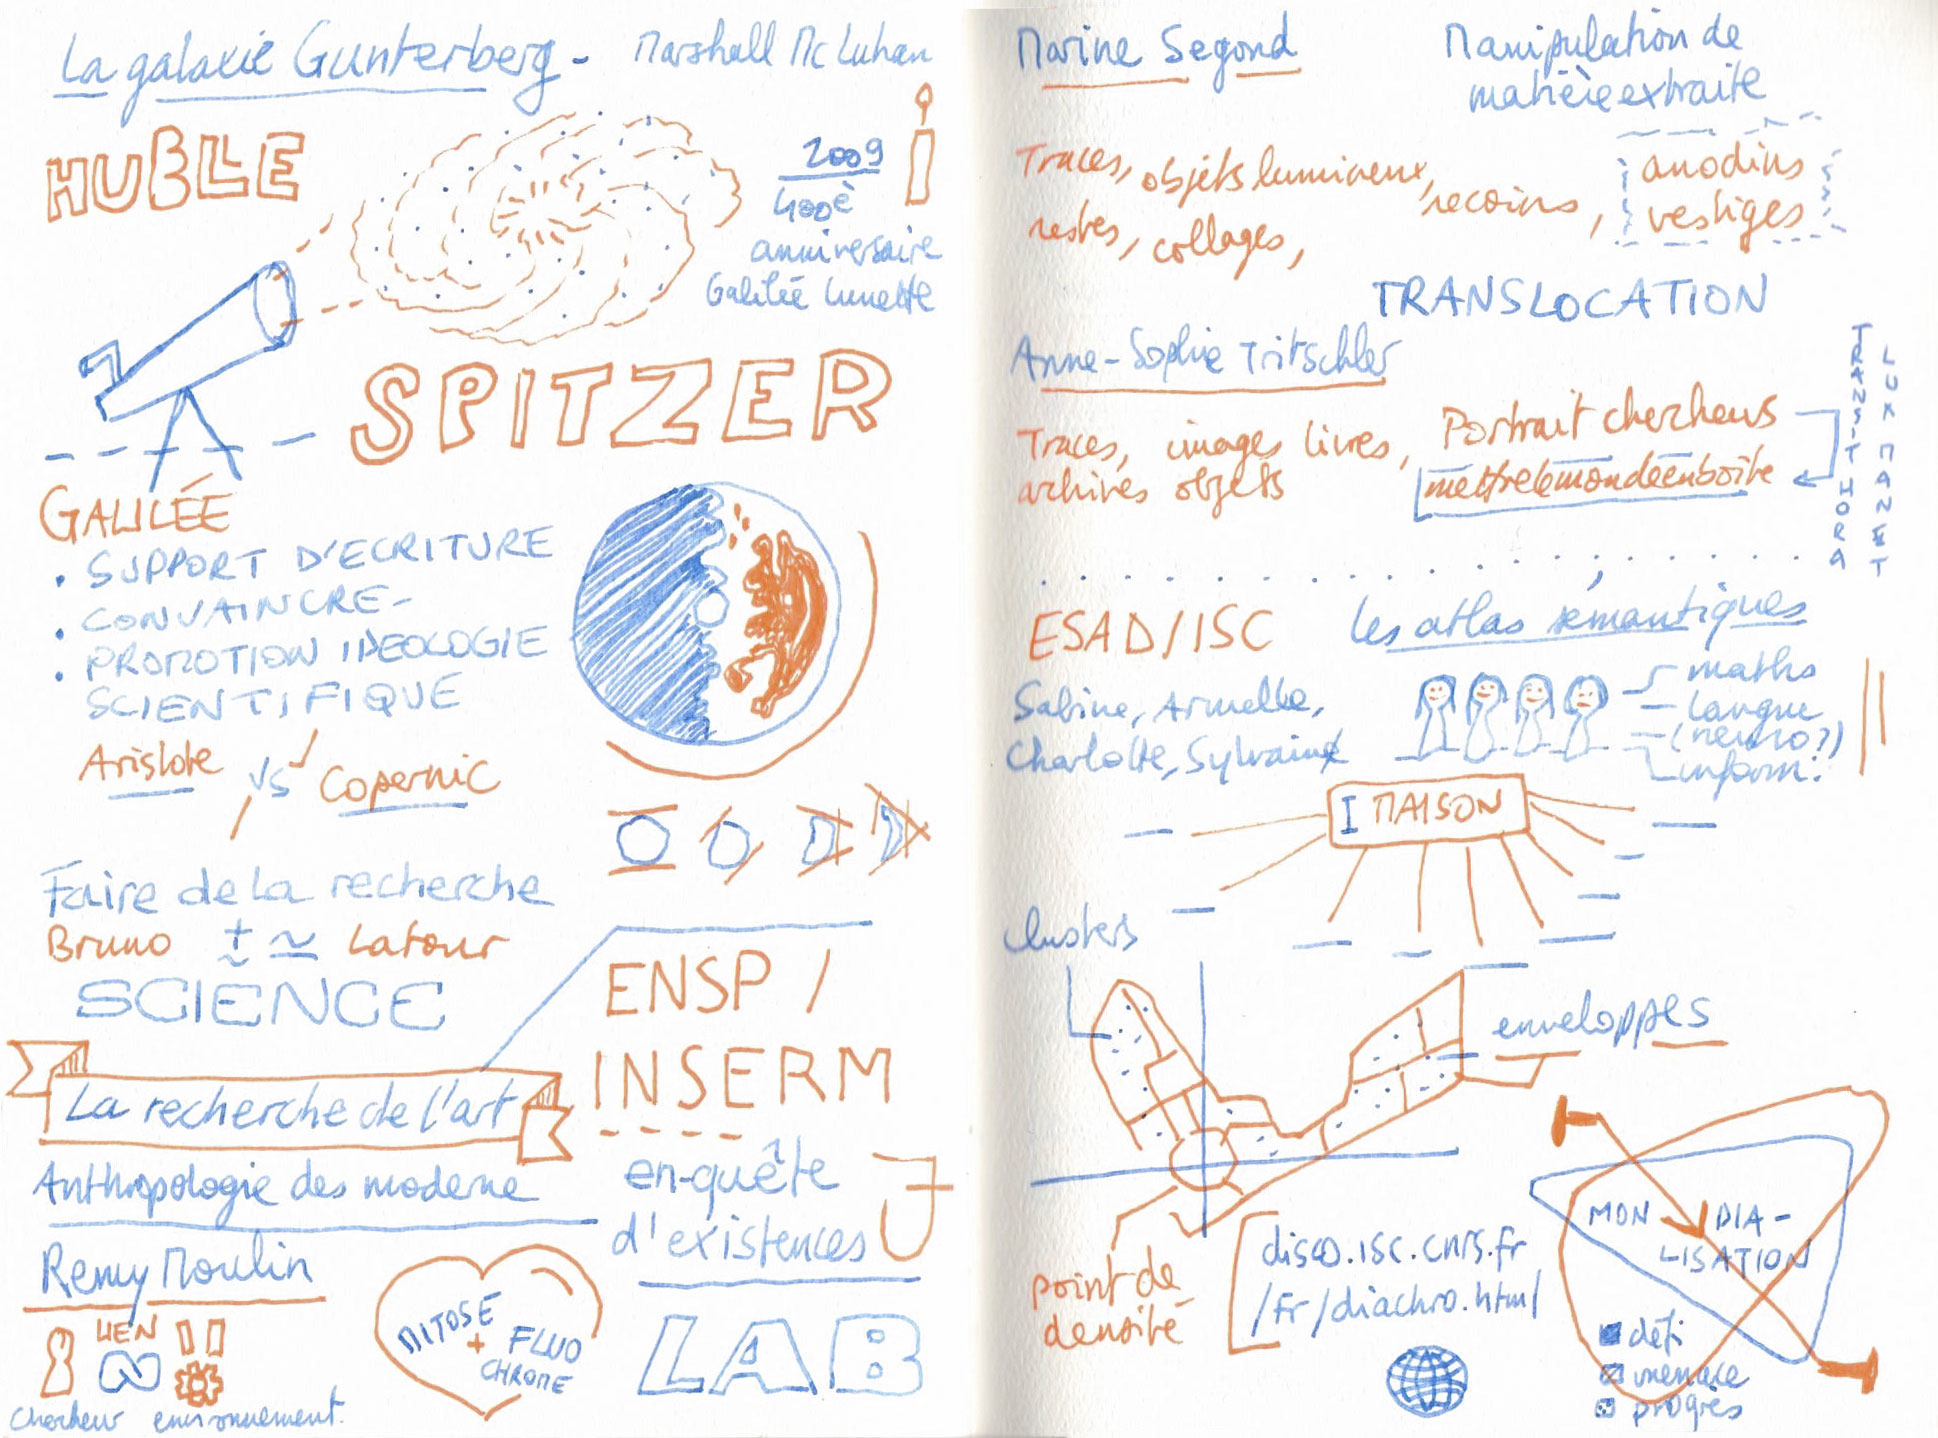 La galaxie Gunterberg - Marshall Mc Luhan
HUBLLE
2009
400è
anniversaire
Galilée lunette
SPITZER
GALILÉE
• SUPPORT D'ECRITURE
• CONVAINCRE -
• PROMOTION IDEOLOGIE
SCIENTIFIQUE
Aristote VS Copernic
Faire de la recherche
Bruno ± ≃ Latour
SCIENCE
La recherche de l'art
Anthropologie des moderne
Remy Moulin
LIEN
Chercheur environnement.
MITOSE
+ FLUO
CHROME
ENSP /
INSERM
en-quête
d'existences
LAB
Marine Segond
Manipulation de
matière extraite
Traces, objets lumineux, recoins,
restes, collages,
anodins
vestiges
TRANSLOCATION
Anne-Sophie Tritschler
Traces, images livres,
archives objets
Portrait chercheurs
mettre le monde en boite
TRANSIT HORA
LUX MANET
ESAD/ISC
Les atlas sémantiques
Sabine, Armelle,
Charlotte, Sylvain
maths
langue
(neuro?)
inform.
I MAISON
clusters
enveloppes
point de
densité
disco.isc.cnrs.fr
/fr/diachro.html
MON DIA-
LISATION
défi
menace
progrès